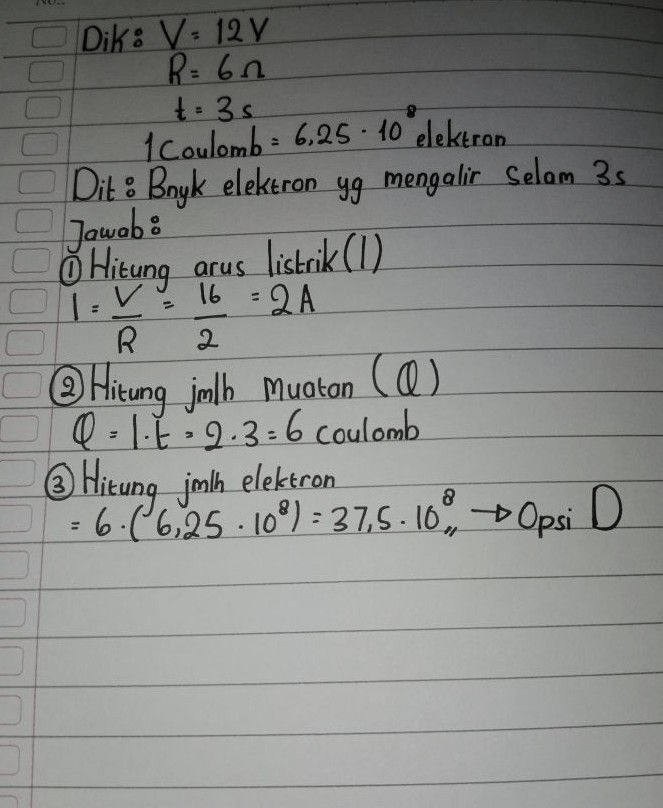 Dik: V = 12 V
R = 6 Ω
t = 3 s
1 Coulomb = 6,25 · 10⁸ elektron
Dit: Bnyk elektron yg mengalir Selam 3s
Jawab:
① Hitung arus listrik (I)
I = V/R = 16/2 = 2 A
② Hitung jmlh Muatan (Q)
Q = I.t = 2.3 = 6 coulomb
③ Hitung jmlh elektron
= 6 · (6,25 · 10⁸) = 37,5 · 10⁸,, → Opsi D